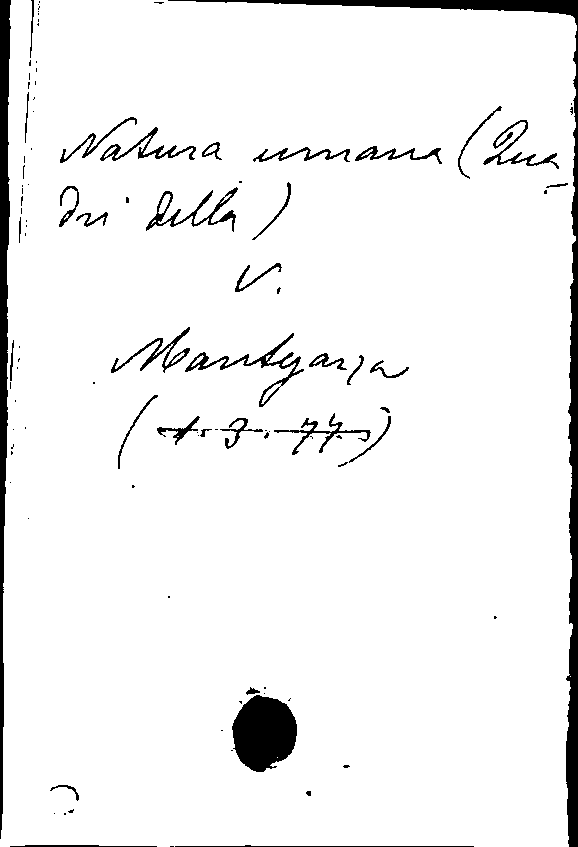 Natura umana (Qua-
dri della)
V.
Mantegazza
(1. 3. 77.)